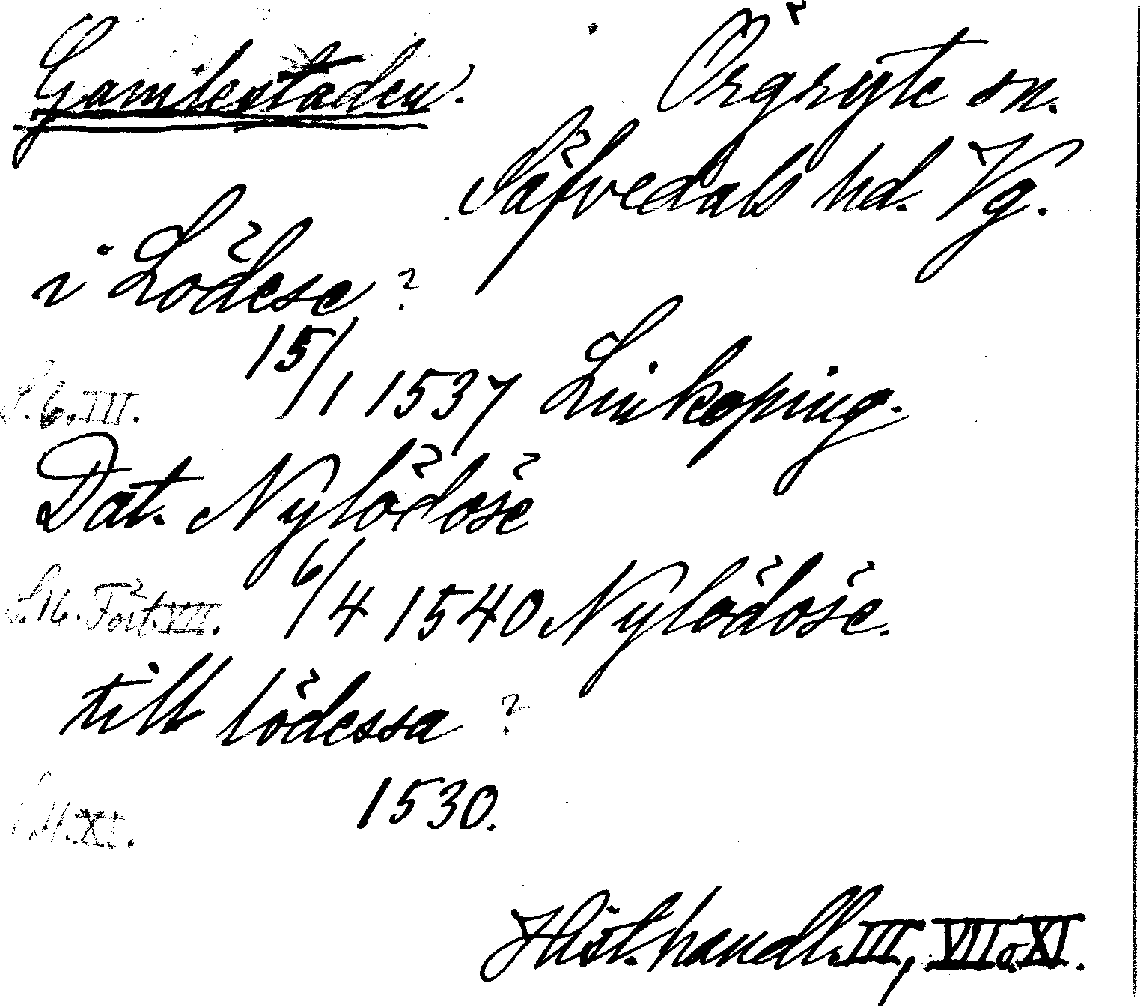 Gamlestaden. Örgryte sn.
Säfvedals hd. Vg.
i Lödese ?
15/1 1537 Linköping.
S. 6. III.
Dat. Nylödöse
S. 16. Fört. VII. 6/4 1540 Nylödöse.
till lödessa ?
1530.
XI.
Hist. handl. III, VII o. XI.